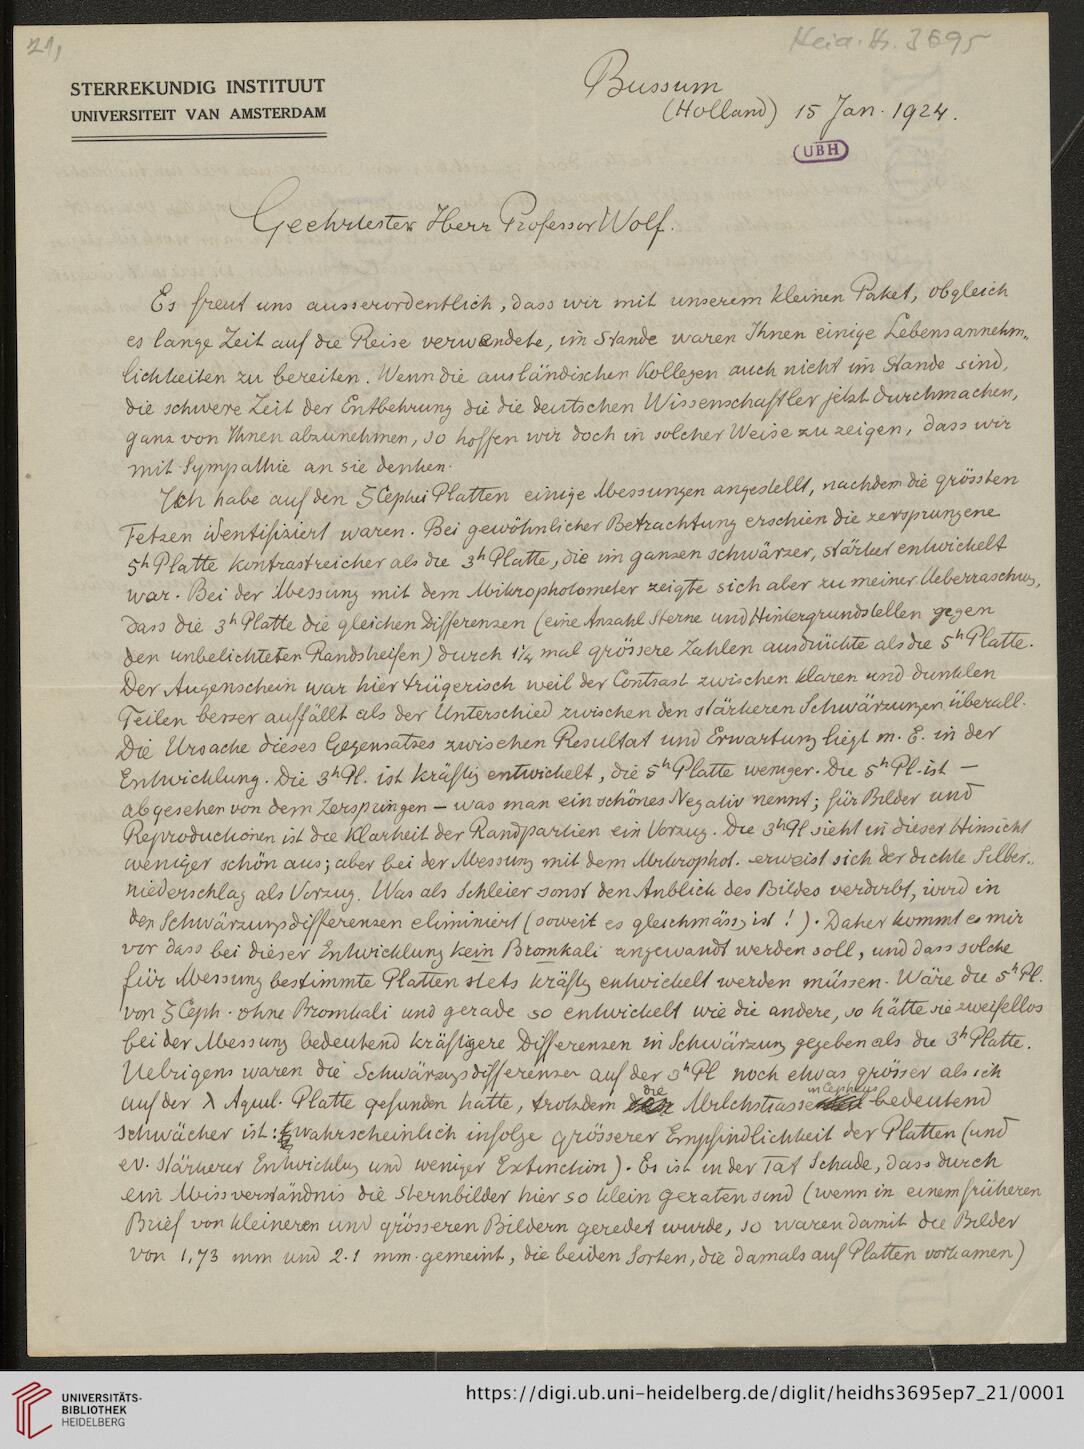 21,
Heid. Hs. 3695
STERREKUNDIG INSTITUUT
UNIVERSITEIT VAN AMSTERDAM
Bussum
(Holland) 15 Jan. 1924.
UBH
Geehrtester Herr Professor Wolf.
Es freut uns ausserordentlich, dass wir mit unserem kleinen Paket, obgleich
es lange Zeit auf die Reise verwendete, im Stande waren Ihnen einige Lebensannehm„
lichkeiten zu bereiten. Wenn die ausländischen Kollegen auch nicht im Stande sind,
die schwere Zeit der Entbehrung die die deutschen Wissenschaftler jetzt durchmachen,
ganz von Ihnen abzunehmen, so hoffen wir doch in solcher Weise zu zeigen, dass wir
mit Sympathie an sie denken.
Ich habe auf den ζ Cephei Platten einige Messungen angestellt, nachdem die grössten
Fetzen identifiziert waren. Bei gewöhnlicher Betrachtung erschien die zersprungene
5h Platte kontrastreicher als die 3h Platte, die im ganzen schwärzer, stärker entwickelt
war. Bei der Messung mit dem Mikrophotometer zeigte sich aber zu meiner Ueberraschung,
dass die 3h Platte die gleichen Differenzen (eine Anzahl Sterne und Hintergrundstellen gegen
den unbelichteten Randstreifen) durch 1¼ mal grössere Zahlen ausdrückte als die 5h Platte.
Der Augenschein war hier trügerisch weil der Contrast zwischen klaren und dunklen
Teilen besser auffällt als der Unterschied zwischen den stärkeren Schwärzungen überall.
Die Ursache dieses Gegensatzes zwischen Resultat und Erwartung liegt m. E. in der
Entwicklung. Die 3h Pl. ist kräftig entwickelt, die 5h Platte weniger. Die 5h Pl. ist —
abgesehen von dem Zerspringen — was man ein schönes Negativ nennt; für Bilder und
Reproductionen ist die Klarheit der Randpartien ein Vorzug. Die 3h Pl sieht in dieser Hinsicht
weniger schön aus; aber bei der Messung mit dem Mikrophot. erweist sich der dichte Silber„
niederschlag als Vorzug. Was als Schleier sonst den Anblick des Bildes verdirbt, wird in
den Schwärzungsdifferenzen eliminiert (soweit es gleichmässig ist!). Daher kommt es mir
vor dass bei dieser Entwicklung kein Bromkali angewandt werden soll, und dass solche
für Messung bestimmte Platten stets kräftig entwickelt werden müssen. Wäre die 5h Pl.
von ζ Ceph. ohne Bromkali und gerade so entwickelt wie die andere, so hätte sie zweifellos
bei der Messung bedeutend kräftigere Differenzen in Schwärzung gegeben als die 3h Platte.
Uebrigens waren die Schwärzungsdifferenzen auf der 3h Pl noch etwas grösser als ich
auf der λ Aquil. Platte gefunden hatte, trotzdem die Milchstrasse in Cepheus bedeutend
schwächer ist: wahrscheinlich infolge grösserer Empfindlichkeit der Platten (und
ev. stärkerer Entwicklung und weniger Extinction). Es ist in der Tat Schade, dass durch
ein Missverständnis die Sternbilder hier so klein geraten sind (wenn in einem früheren
Brief von kleineren und grösseren Bildern geredet wurde, so waren damit die Bilder
von 1,73 mm und 2.1 mm. gemeint, die beiden Sorten, die damals auf Platten vorkamen)
UNIVERSITÄTS-
BIBLIOTHEK
HEIDELBERG
https://digi.ub.uni-heidelberg.de/diglit/heidhs3695ep7_21/0001